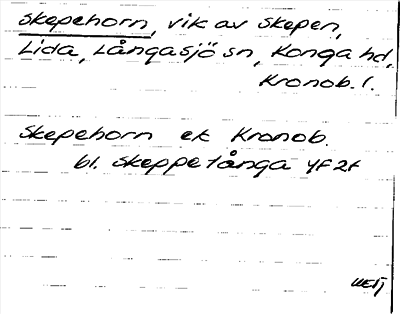 Skepehorn, vik av Skepen,
Lida, Långasjö sn, Konga hd,
Kronob. l.
Skepehorn ek Kronob.
bl. Skeppetånga YF 2f